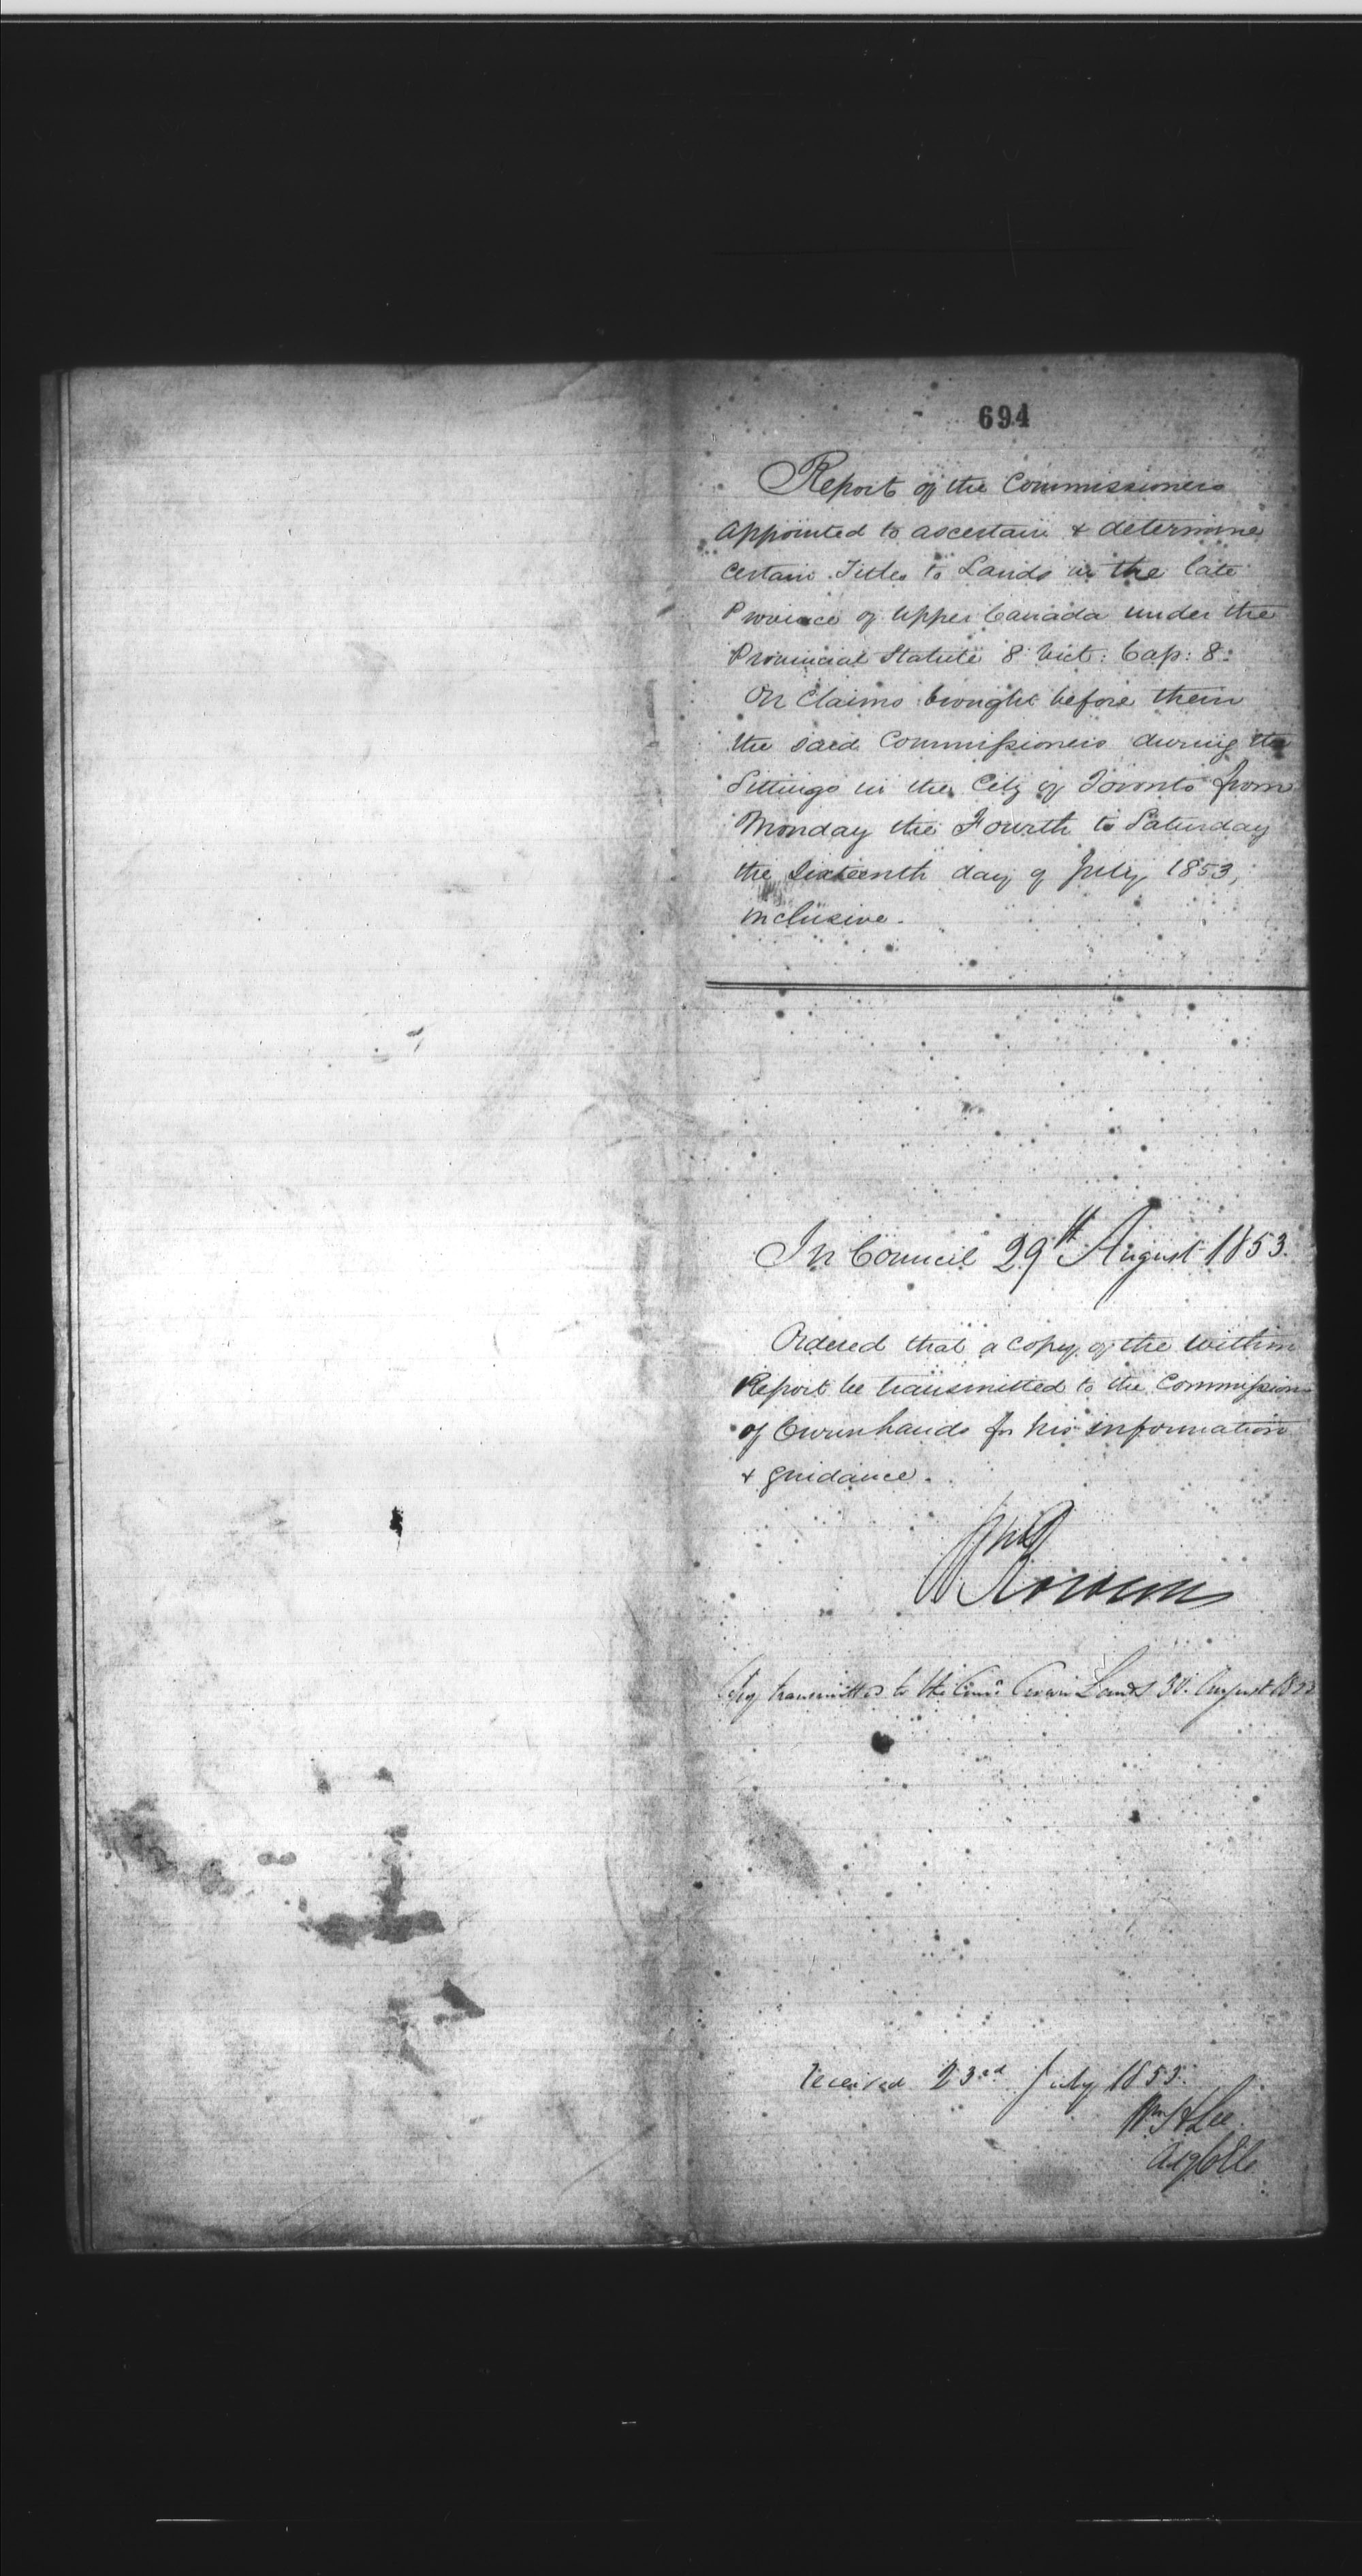 694
Report of the Commissioners
appointed to ascertain & determine
certain Titles to Lands in the late
Province of Upper Canada under the
Provincial Statute 8 Vict: Cap: 8:
On Claims brought before them
the said Commissioners during the
Sittings in the City of Toronto from
Monday the Fourth to Saturday
the Sixteenth day of July 1853,
inclusive.
In Council 29th August 1853.
Ordered that a copy of the within
Report be transmitted to the Commission
of Crown Lands for his information
& guidance.
Wm
Rowan
Copy transmitted to the Comr. Crown Lands 30. August 1853
Received 23rd July 1853.
Wm H Lee